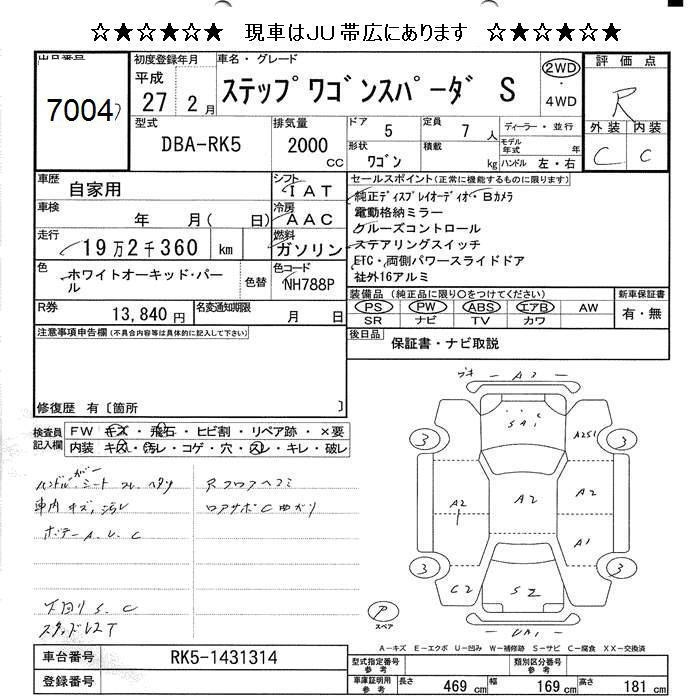 ☆★☆★☆★ 現車はJU帯広にあります ☆★☆★☆★
出品番号
7004
初度登録年月
平成
27 2月
車名・グレード
ステップワゴンスパーダ S
2WD
・
4WD
評価点
R
外装 内装
C C
型式
DBA-RK5
排気量
2000
CC
ドア 5
定員 7人
ディーラー・並行
モデル年式 年
形状 ワゴン
積載 kg
ハンドル 左・右
車歴 自家用
シフト IAT
車検 年 月( 日)
冷房 AAC
走行 19万2千360 km
燃料 ガソリン
色 ホワイトオーキッド・パール
色替
色コード NH788P
R券 13,840円
名変通知期限 月 日
セールスポイント(正常に機能するものに限ります)
純正ディスプレイオーディオ・Bカメラ
電動格納ミラー
クルーズコントロール
ステアリングスイッチ
ETC・両側パワースライドドア
社外16アルミ
装備品(純正品に限り○をつけてください)
PS PW ABS エアB AW
SR ナビ TV カワ
新車保証書
有・無
後日品 保証書・ナビ取説
注意事項申告欄(不具合内容等は具体的に記入して下さい)
修復歴 有〔箇所 〕
検査員記入欄
FW キズ・飛石・ヒビ割・リペア跡・×要
内装 キズ・汚レ・コゲ・穴・スレ・キレ・破レ
ハンドル、シート スレ、ヘタリ
車内 キズ、汚レ
ボデー A、U、C
下回り S、C
Rフロアヘコミ
ロアサポC曲がり
A2
SA1
3 3
A2S1
A2 A2 A2
A1
3 3
C2
S2
UA1
P
スペア
A-キズ E-エクボ U-凹み W-補修跡 S-サビ C-腐食 XX-交換済
車台番号 RK5-1431314
登録番号
型式指定番号 参考
類別区分番号 参考
車庫証明用 参考
長さ 469cm
幅 169cm
高さ 181cm